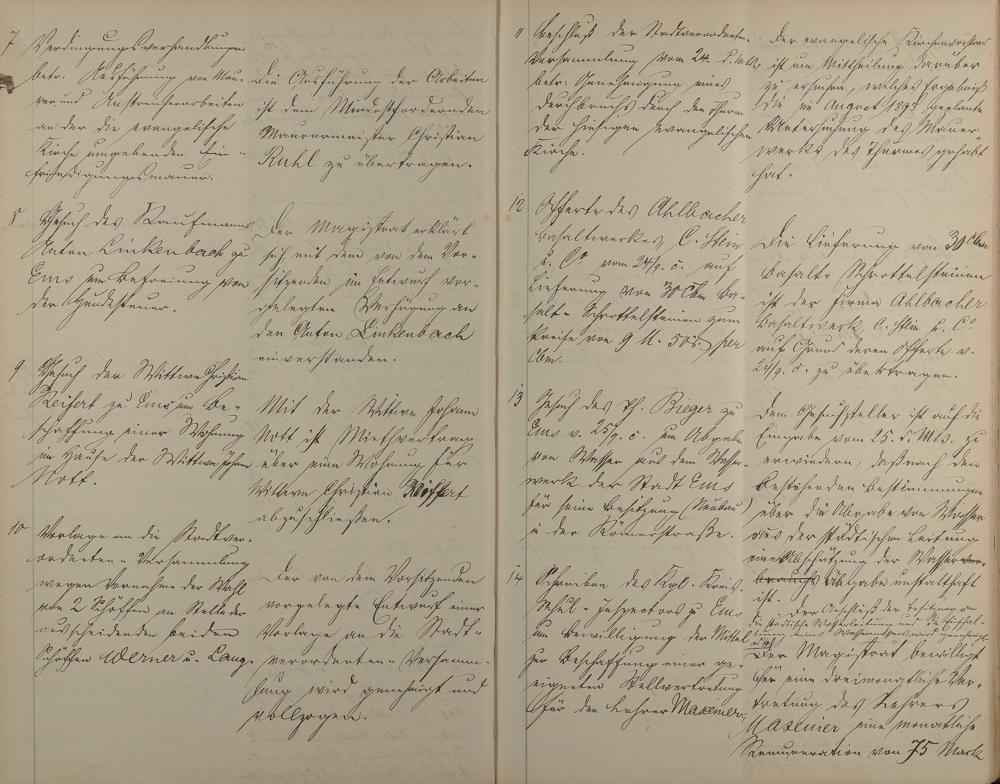 7 Verdingungsverhandlungen
betr. Ausführung von Mau-
rer und Anstreicherarbeiten
an der die evangelische
Kirche umgebenden Ein-
friedigungsmauer.
Die Ausführung der Arbeiten
ist dem Mindestfordernden
Maurermeister Christian
Ruhl zu übertragen.
8 Gesuch des Kaufmanns
Anton Linkenbach zu
Ems um Befreiung von
der Hundesteuer.
Der Magistrat erklärt
sich mit dem von dem Vor-
sitzenden im Entwurf vor-
gelegten Verfügung an
den Anton Linkenbach
einverstanden.
9 Gesuch der Wittwe Christian
Reifert zu Ems um Be-
schaffung einer Wohnung
im Hause der Wittwe Johann
Nott.
Mit der Wittwe Johann
Nott ist Miethvertrag
über eine Wohnung für
Wittwe Christian
abzuschließen.
10 Vorlage an die Stadtver-
ordneten-Versammlung
wegen Vornahme der Wahl
von 2 Schöffen an Stelle der
ausscheidenden beiden
Schöffen Werner u. Lang.
Der von dem Vorsitzenden
vorgelegte Entwurf einer
Vorlage an die Stadt-
verordneten-Versamm-
lung wird genehmigt und
vollzogen.
11 Beschluß der Stadtverordneten-
Versammlung vom 24. d. Mts.
betr. Genehmigung eines
Durchbruchs durch den Thurm
der hiesigen evangelischen
Kirche.
Der evangelische Kirchenvorstand
ist um Mittheilung darüber
zu ersuchen, welches Ergebniß
die im August 1893 geplante
Untersuchung des Mauer-
werks des Thurmes gehabt
hat.
12 Offerte des Ahlbacher
Basaltwerkes C. Stein
u. Co vom 24/9. c. auf
Lieferung von 30 Cbm Ba-
salt-Schrottelsteinen zum
Preise von 9 M. 50 per
Cbm.
Die Lieferung von 30 Cbm
Basalt-Schrottelsteinen
ist der Firma Ahlbacher
Basaltwerk C. Stein u. Co
auf Grund deren Offerte v.
24/9. c. zu übertragen.
13 Gesuch des Ph. Bieger zu
Ems v. 25/9. c. um Abgabe
von Wasser aus dem Wasser-
werk der Stadt Ems
für seine Besitzung (Neubau)
in der Römerstraße.
Dem Gesuchsteller ist auf die
Eingabe vom 25. d. Mts. zu
erwiedern, daß nach den
bestehenden Bestimmungen
über die Abgabe von Wasser
aus der städtischen Leitung
eine Abschätzung der Wasserver-
brauchs Abgabe unstatthaft
ist.
Der Anschluß der Besitzung an
die städtische Wasserleitung und die Einstel-
lung eines Wassermessers wird genehmigt
14 Schreiben des Kgl. Kreis-
Schul-Inspectors zu Ems
um Bewilligung der Mittel
zur Beschaffung einer ge-
eigneten Stellvertretung
für den Lehrer Maxeiner.
Der Magistrat bewilligt
für eine dreimonatliche Ver-
tretung des Lehrers
Maxeiner eine monatliche
Remuneration von 75 Mark